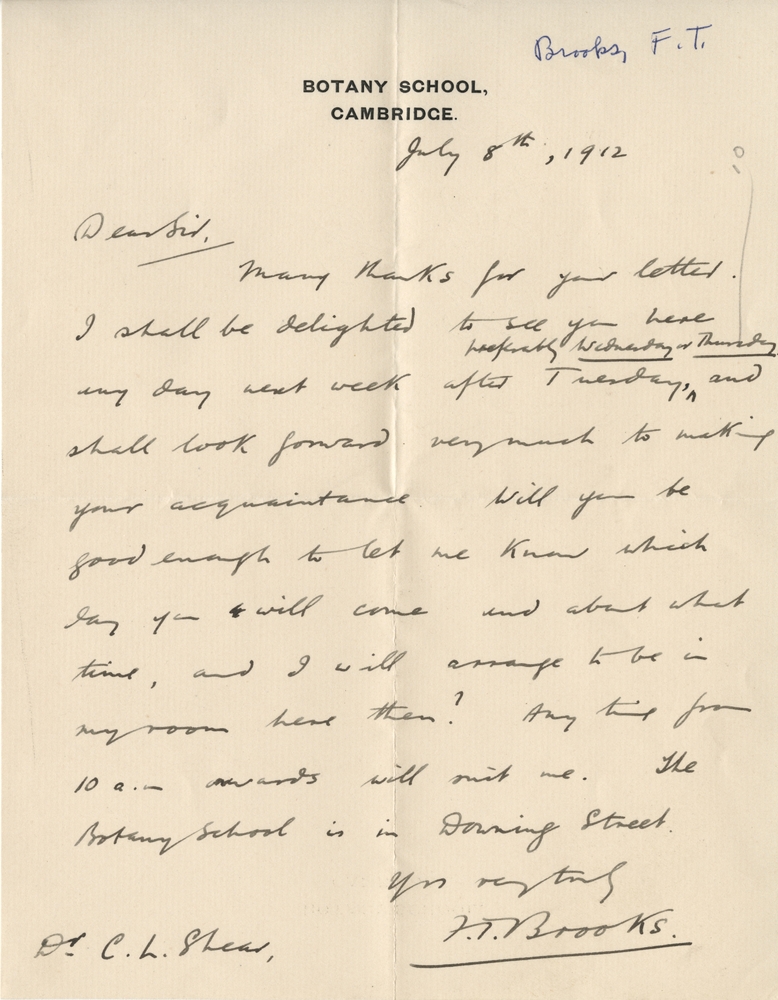 Brooks, F. T.
BOTANY SCHOOL,
CAMBRIDGE.
July 8th, 1912
Dear Sir,
Many thanks for your letter.
I shall be delighted to see you here
preferably Wednesday or Thursday
any day next week after Tuesday, ^ and
shall look forward very much to making
your acquaintance. Will you be
good enough to let me know which
day you will come and about what
time, and I will arrange to be in
my room here then? Any time from
10 a.m onwards will suit me. The
Botany School is in Downing Street.
Yrs very truly
F. T. Brooks.
Dr. C. L. Shear,